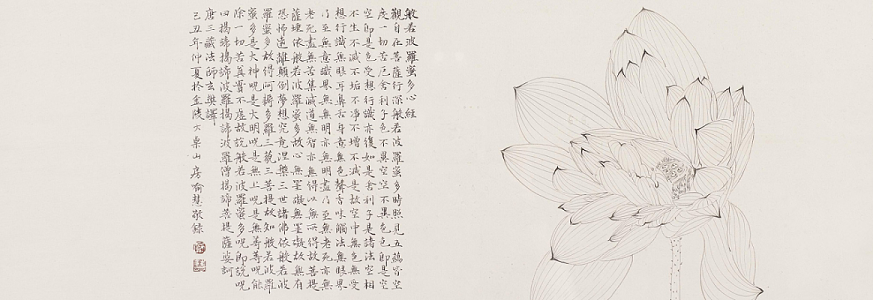 般若波羅蜜多心經
觀自在菩薩行深般若波羅蜜多時照見五蘊皆空
度一切苦厄舍利子色不異空空不異色色即是空
空即是色受想行識亦復如是舍利子是諸法空相
不生不滅不垢不淨不增不減是故空中無色無受
想行識無眼耳鼻舌身意無色聲香味觸法無眼界
乃至無意識界無無明亦無無明盡乃至無老死亦無
老死盡無苦集滅道無智亦無得以無所得故菩提
薩埵依般若波羅蜜多故心無罣礙無罣礙故無有
恐怖遠離顛倒夢想究竟涅槃三世諸佛依般若波
羅蜜多故得阿耨多羅三藐三菩提故知般若波羅
蜜多是大神呪是大明呪是無上呪是無等等呪能
除一切苦真實不虛故說般若波羅蜜多呪即說呪
曰揭諦揭諦波羅揭諦波羅僧揭諦菩提薩婆訶
唐三藏法師玄奘譯
己丑年仲夏於金陵六栗山房喻慧敬錄